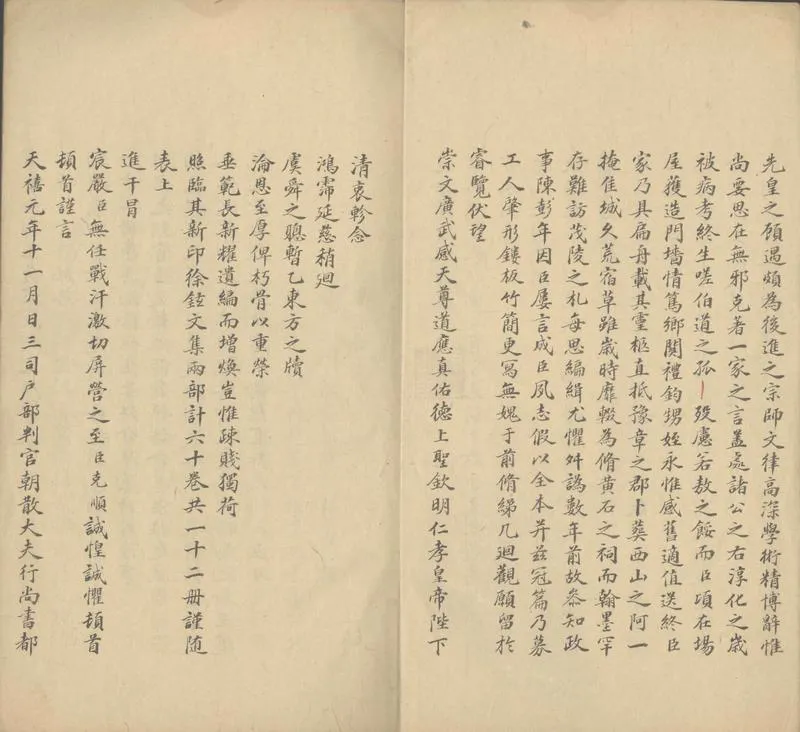 先皇之顾遇頗為後進之宗師文律高深學術精博辭惟
尚要思在無邪克著一家之言盖處諸公之右淳化之歲
被病考終生嗟伯道之孤殁慮若敖之餒而臣頃在場
屋獲造門墻情篤鄉関禮鈞甥姪永惟感舊適值送終臣
家乃具扁舟載其靈柩直抵豫章之郡卜葬西山之阿一
掩佳城久荒宿草雖歲時靡輟為脩黄石之祠而翰墨罕
存難訪茂陵之札每思編緝尤懼舛譌數年前故叅知政
事陳彭年因臣屡言成臣夙志假以全本并兹冠篇乃募
工人肇形鏤板竹簡更寫無媿于前脩綈几迴觀願留於
睿覽伏望
崇文廣武感天尊道應真佑德上聖欽明仁孝皇帝陛下
清衷軫念
鴻霈延慈稍迴
虞舜之聰暫乙東方之牘
淪恩至厚俾朽骨以重榮
垂範長新耀遺編而增煥豈惟疎賤獨荷
照臨其新印徐鉉文集兩部計六十卷共一十二册謹随
表上
進干冒
宸嚴臣無任戰汗激切屏營之至臣克順誠惶誠懼頓首
頓首謹言
天禧元年十一月日三司户部判官朝散大夫行尚書都